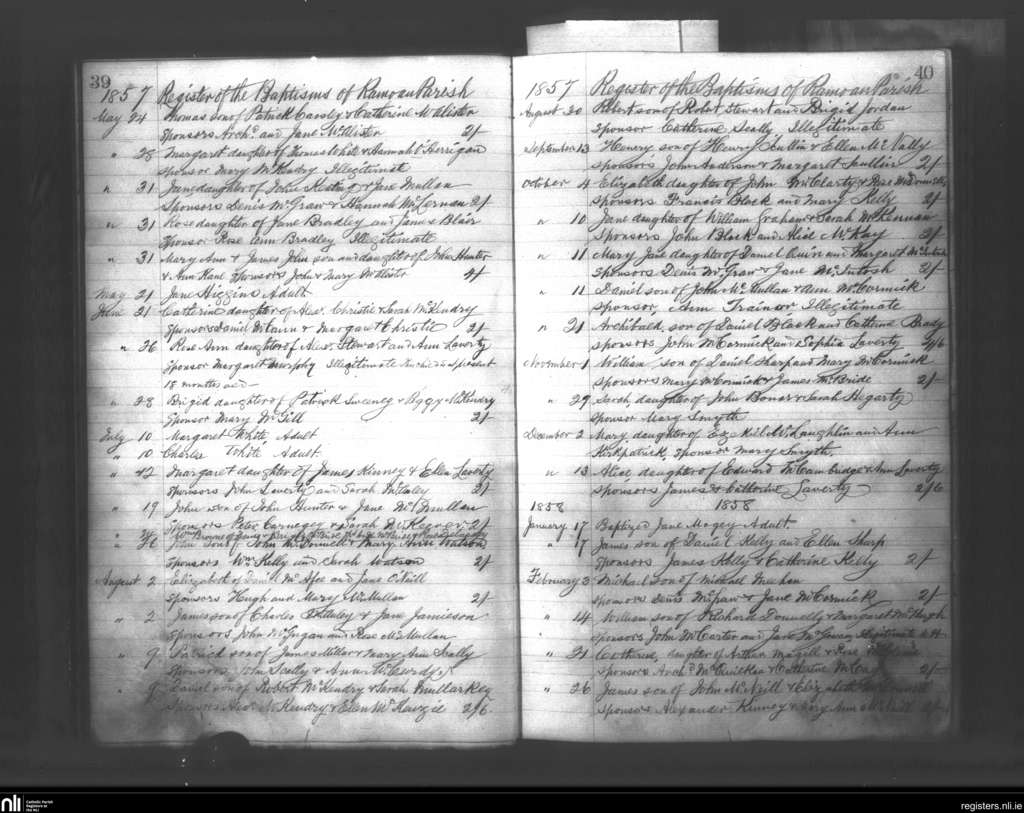 39
1857 Register of the Baptisms of Ramoan Parish
May 24 Thomas son of Patrick Cassly & Catherine McAlister
Sponsors Archd. and Jane McAlister 2/-
" 28 Margaret daughter of Thomas White & Hannah Berrigan
Sponsor Mary McKendry Illegitimate
" 31 Jane daughter of John & Jane Mullan
Sponsors Denis McGraw & Hannah McLernan 2/-
" 31 Rose daughter of Jane Bradley and James Blair
Sponsor Rose Ann Bradley Illegitimate
" 31 Mary Ann & James John son and daughter of John Hunter
& Ann Kane Sponsors John & Mary McAlister 4/-
May 21 Jane Higgins Adult
June 21 Catherine daughter of Alexr. Christie & Sarah McKendry
Sponsors Daniel & Margaret Christie 2/-
" 26 Rose Ann daughter of Alexr. Stewart and Ann Laverty
Sponsor Margaret Murphy Illegitimate at present
18 months old —
" 28 Brigid daughter of Patrick Sweeney & Peggy McKendry
Sponsor Mary McGill 2/-
July 10 Margaret White Adult
" 10 Charles White Adult
" 12 Margaret daughter of James Kinney & Ellen Laverty
Sponsors John Laverty and Sarah 2/-
" 19 John son of John Hunter & Jane McMullan
Sponsors Peter Carnegey & Sarah McKeever 2/-
" 26 John son of John McDonnell & Mary Ann Watson
Sponsors Wm. Kelly and Sarah Watson 2/-
August 2 Elizabeth of Daniel McAfee and Jane O'Neill
Sponsors Hugh and Mary McMullan 2/-
" 2 James son of Charles & Jane Jamieson
Sponsors John McGugan and Rose McMullan
" 9 son of James Millar & Mary Ann Scally
Sponsors John Scally & Anne McCurdy
" 9 Daniel son of Robert McKendry & Sarah Mullarkey
Sponsors Alexr. McKendry & Ellen McKenzie 2/6
40
1857 Register of the Baptisms of Ramoan Parish
August 30 Robert son of Robert Stewart and Brigid Jordan
Sponsor Catherine Scally, Illegitimate
September 13 Henery son of Henry & Ellen McNally
Sponsors John Anderson & Margaret 2/-
October 4 Elizabeth daughter of John McClarty & Rose McDonnell
Sponsors Francis Black and Mary Kelly 2/-
" 10 Jane daughter of William Graham & Sarah McKernan
Sponsors John Black and Alice McKay 2/-
" 11 Mary Jane daughter of Daniel Quinn and Margaret McIntosh
Sponsors Denis McGraw & Jane McIntosh 2/-
" 11 Daniel son of John McCullan & Ann McCormick
Sponsor, Ann Trainor Illegitimate
" 21 Archibald son of Daniel Black and Catherine Brady
Sponsors John McCormick and Sophia Laverty 2/6
November 1 William son of Daniel Sharp and Mary McCormick
Sponsors Mary McCormick & James McBride 2/-
" 29 Sarah daughter of John Bonar & Sarah Hegarty
Sponsor Mary Smyth
December 2 Mary daughter of McLaughlin and Ann
Kirkpatrick, Sponsor Mary Smyth.
" 13 Alice daughter of Edward McCambridge & Ann Laverty
Sponsors James & Catherine Laverty — 2/6
1858 1858
January 17 Baptized Jane Magey Adult
" 17 James son of Daniel Kelly and Ellen Sharp
Sponsors James Kelly & Catherine Kelly 2/-
February 3 Michael son of Michael Meehan
Sponsors Denis McGraw & Jane McCormick 2/-
" 14 William son of Richard Donnelly & Margaret McHugh
Sponsors John McCarter and Jane
" 21 Catherine, daughter of Arthur Magill & Rose
Sponsors Archd. McQuilkan & Catherine McLong 2/-
" 26 James son of John McNeill & Elizabeth
Sponsors Alexander Kinney & Mary Ann McNeill 2/-
nli Catholic Parish
Registers at
the NLI
registers.nli.ie